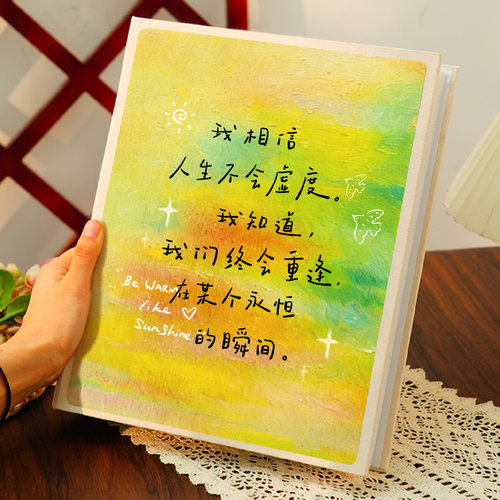 我相信
人生不会虚度。
我知道，
我们终会重逢，
在某个永恒
的瞬间。
"Be WARM
like ♡
Sunshine